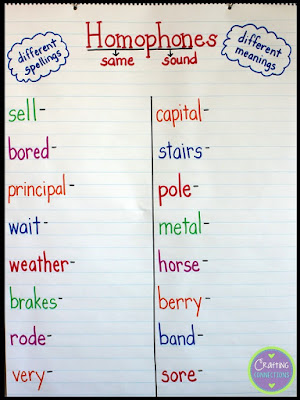 Homophones
same sound
different
spellings
different
meanings
sell-
bored-
principal-
wait-
weather-
brakes-
rode-
very-
capital-
stairs-
pole-
metal-
horse-
berry-
band-
sore-
CRAFTING
CONNECTIONS